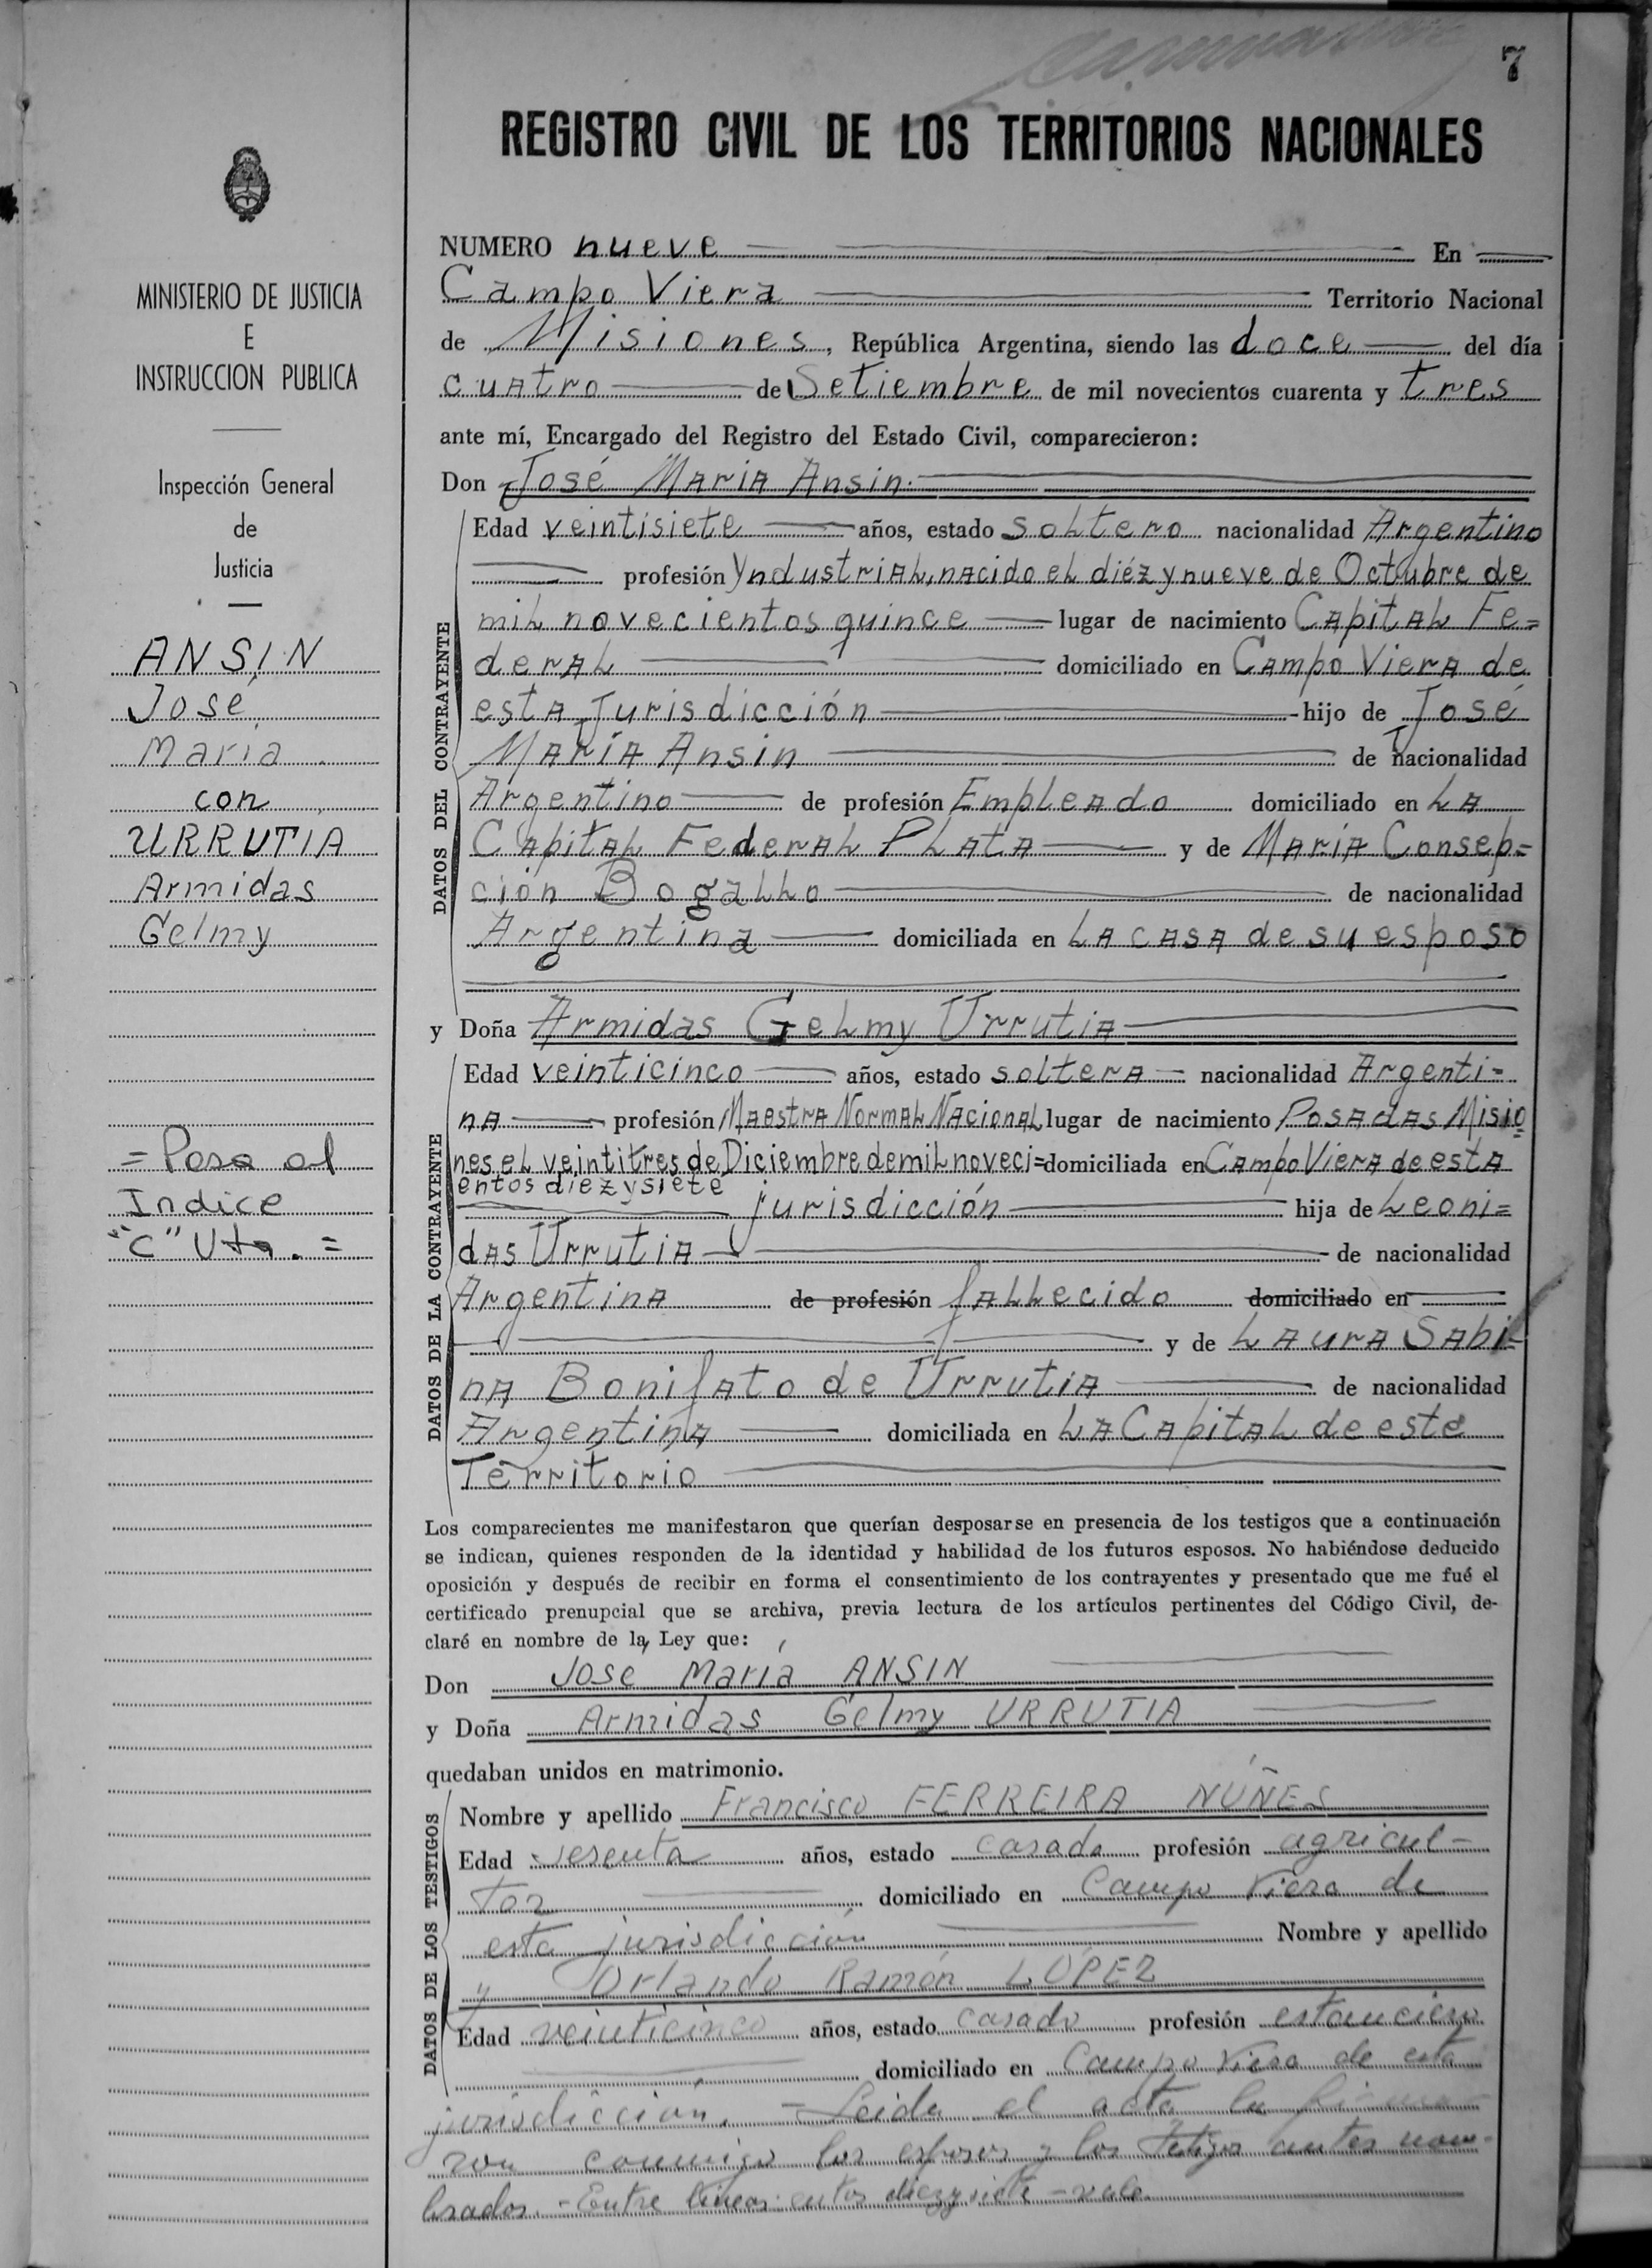 7
REGISTRO CIVIL DE LOS TERRITORIOS NACIONALES
MINISTERIO DE JUSTICIA
E
INSTRUCCION PUBLICA
Inspección General
de
Justicia
ANSIN
José
Maria
con
URRUTIA
Armidas
Gelmy
=Pasa al
Indice
"C" Vta. =
NUMERO nueve En
Campo Viera Territorio Nacional
de Misiones, República Argentina, siendo las doce del día
cuatro de Setiembre de mil novecientos cuarenta y tres
ante mí, Encargado del Registro del Estado Civil, comparecieron:
Don José Maria Ansin.
DATOS DEL CONTRAYENTE
Edad veintisiete años, estado soltero nacionalidad Argentino
profesión Yndustrial, nacido el diéz y nueve de Octubre de
mil novecientos quince lugar de nacimiento Capital Fe=
deral domiciliado en Campo Viera de
esta Jurisdicción hijo de José
María Ansin de nacionalidad
Argentino de profesión Empleado domiciliado en La
Capital Federal Plata y de María Consep=
ción Bogallo de nacionalidad
Argentina domiciliada en La casa de su esposo
y Doña Armidas Gelmy Urrutia
DATOS DE LA CONTRAYENTE
Edad veinticinco años, estado soltera nacionalidad Argenti=
na profesión Maestra Normal Nacional lugar de nacimiento Posadas Misio
nes el veintitres de Diciembre de mil noveci= domiciliada en Campo Viera de esta
entos diez y siete
jurisdicción hija de Leoni=
das Urrutia de nacionalidad
Argentina de profesión fallecido domiciliado en
y de Laura Sabi-
na Bonifato de Urrutia de nacionalidad
Argentina domiciliada en La Capital de este
Territorio
Los comparecientes me manifestaron que querían desposarse en presencia de los testigos que a continuación
se indican, quienes responden de la identidad y habilidad de los futuros esposos. No habiéndose deducido
oposición y después de recibir en forma el consentimiento de los contrayentes y presentado que me fué el
certificado prenupcial que se archiva, previa lectura de los artículos pertinentes del Código Civil, de-
claré en nombre de la Ley que:
Don José María ANSIN
y Doña Armidas Gelmy URRUTIA
quedaban unidos en matrimonio.
DATOS DE LOS TESTIGOS
Nombre y apellido Francisco FERREIRA NÚÑES
Edad sesenta años, estado casado profesión agricul-
tor domiciliado en Campo Viera de
esta jurisdicción Nombre y apellido
y Orlando Ramón LÓPEZ
Edad veinticinco años, estado casado profesión estanciero
domiciliado en Campo Viera de esta
jurisdicción. - Leida el acta la firma-
ron conmigo los esposos y los testigos antes nom-
brados. - Entre lineas: entos diez y siete - vale